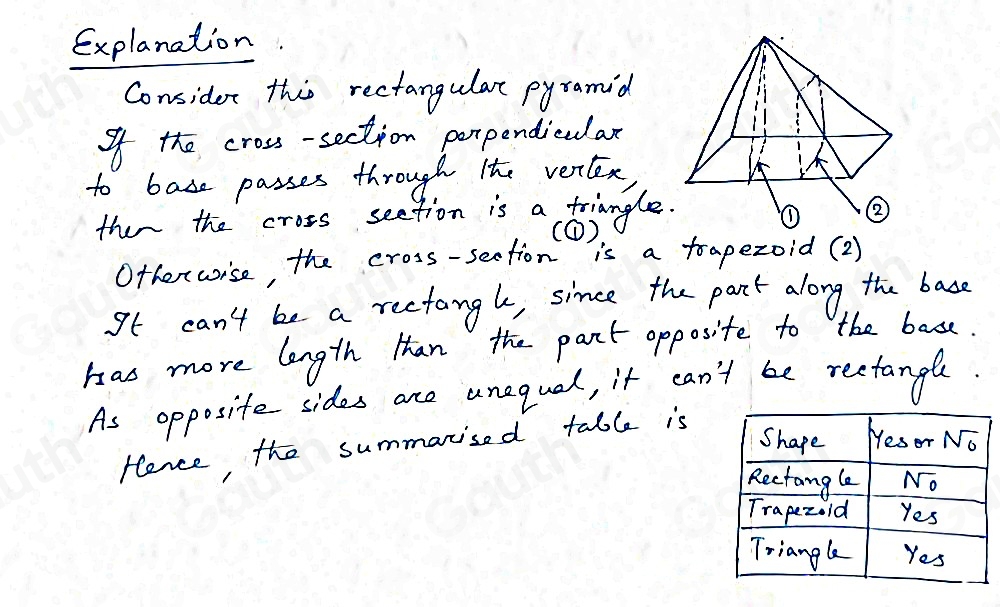 Explanation.
Consider this rectangular pyramid
If the cross-section perpendicular
to base passes through the vertex,
then the cross section is a triangle.
(①)
Otherwise, the cross-section is a trapezoid (2)
It can't be a rectangle, since the part along the base
has more length than the part opposite to the base.
As opposite sides are unequal, it can't be rectangle.
Hence, the summarised table is
① ②
Shape Yes or No
Rectangle No
Trapezoid Yes
Triangle Yes
Gauth